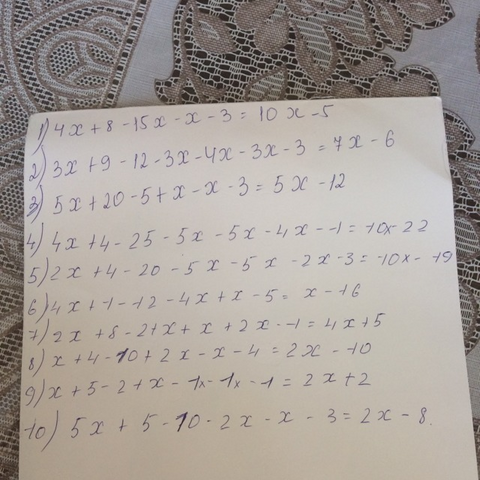 1) 4x+8-15x-x-3=10x-5
2) 3x+9-12-3x-4x-3x-3=7x-6
3) 5x+20-5+x-x-3=5x-12
4) 4x+4-25-5x-5x-4x-1=-10x-22
5) 2x+4-20-5x-5x-2x-3=-10x-19
6) 4x+1-12-4x+x-5=x-16
7) 2x+8-2+x+x+2x-1=4x+5
8) x+4-10+2x-x-4=2x-10
9) x+5-2+x-1x-1x-1=2x+2
10) 5x+5-10-2x-x-3=2x-8.